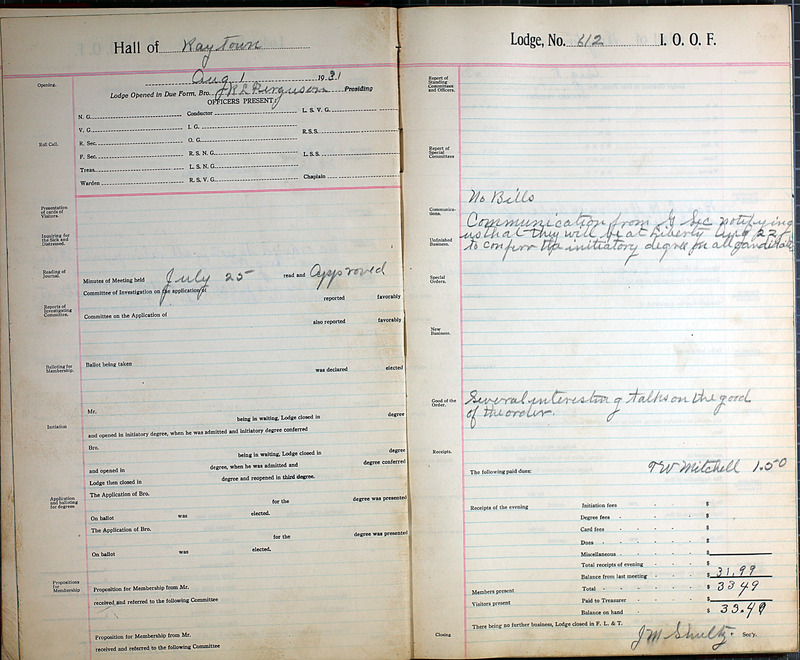 Hall of Raytown
Aug 1 1931
Opening.
Lodge Opened in Due Form, Bro. J R L Ferguson Presiding
OFFICERS PRESENT
N. G. Conductor L. S. V. G.
V. G. I. G. R.S.S.
Roll Call.
R. Sec. O. G.
F. Sec. R. S. N. G. L.S.S.
Treas. L. S. N. G.
Warden R. S. V. G. Chaplain
Presentation of cards of Visitors.
Inquiring for the Sick and Distressed.
Reading of Journal.
Minutes of Meeting held July 25 read and approved
Committee of Investigation on the application of
reported favorably
Reports of Investigating Committee.
Committee on the Application of
also reported favorably
Balloting for Membership.
Ballot being taken
was declared elected
Mr.
being in waiting, Lodge closed in degree
Initiation
and opened in initiatory degree, when he was admitted and initiatory degree conferred
Bro.
being in waiting, Lodge closed in degree
and opened in degree, when he was admitted and degree conferred
Lodge then closed in degree and reopened in third degree.
Application and balloting for degrees
The Application of Bro.
for the degree was presented
On ballot was elected.
The Application of Bro.
for the degree was presented
On ballot was elected.
Propositions for Membership
Proposition for Membership from Mr.
received and referred to the following Committee
Proposition for Membership from Mr.
received and referred to the following Committee
Lodge, No. 612 I. O. O. F.
Report of Standing Committees and Officers.
Report of Special Committees
No Bills
Communications.
Communication from G Sec notifying
us that they will be at Liberty Aug 22
Unfinished Business.
to confirr the initiatory degree for all candidates
Special Orders.
New Business.
Good of the Order.
Several interesting talks on the good
of the order.
Receipts.
The following paid dues: T W Mitchell 1.50
Receipts of the evening Initiation fees $
Degree fees $
Card fees $
Dues $
Miscellaneous $
Total receipts of evening $
Balance from last meeting $ 31.99
Members present Total $ 33 49
Visitors present Paid to Treasurer $
Balance on hand $ 33.49
There being no further business, Lodge closed in F. L. & T.
Closing J M Shultz. Sec'y.